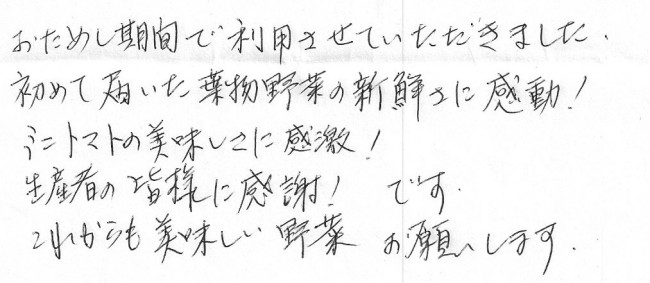 おためし期間で利用させていただきました.
初めて届いた葉物野菜の新鮮さに感動!
ミニトマトの美味しさに感激!
生産者の皆様に感謝! です.
これからも美味しい野菜 お願いします.